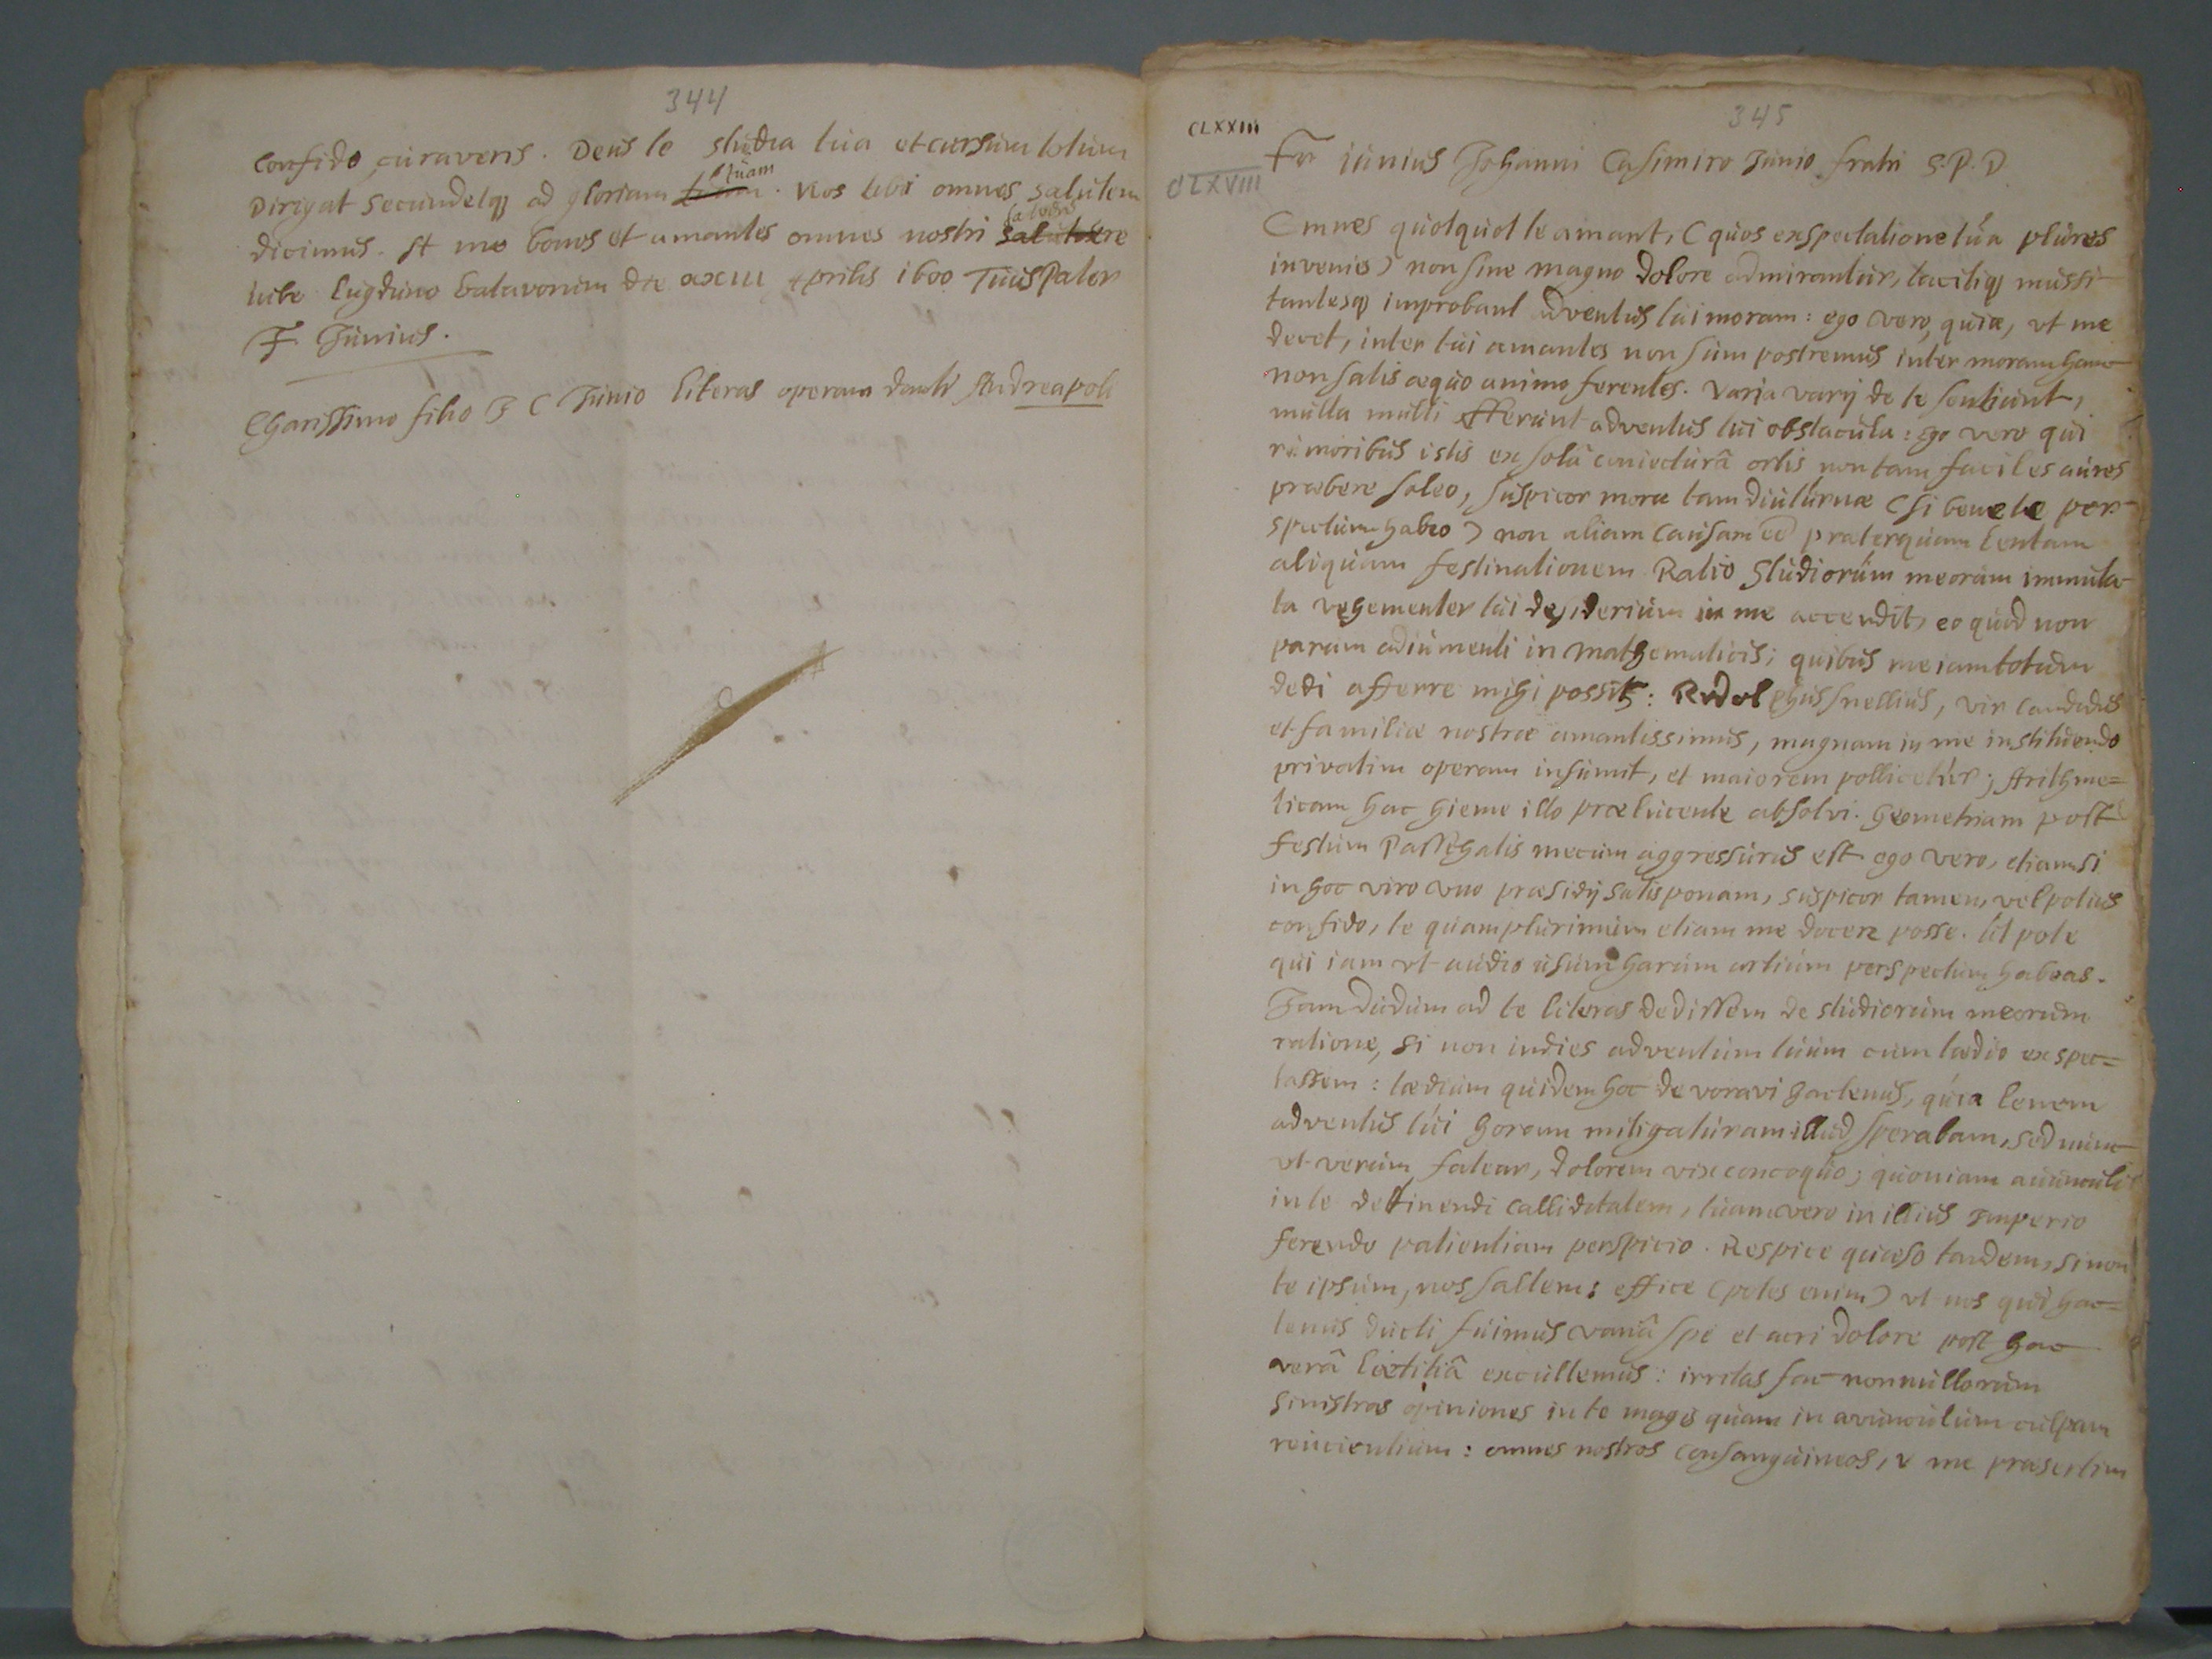 344
confido curaveris. Deus te studia tua et cursum totum
suam
Dirigat secundetq; ad gloriam tuam. Nos tibi omnes salutem
salvere
dicimus. et me bonos et amantes omnes nostri salutere
iube Lugduno batavorum die xxiii Aprilis 1600 Tuus Pater
F Junius.
Charissimo filio J C Junio literas operam danti Andreapoli
CLXXIII
345
CLXVIII
Fr Junius Johanni Casimiro Junio fratri S.P.D
Omnes quotquot te amant, (quos exspectatione tua plures
invenies) non sine magno dolore admirantur, tacitiq; mussi-
tantesq; improbant adventus tui moram: ego vero, quia, ut me
decet, inter tui amantes non sum postremus inter moram hanc
non satis aequo animo ferentes. Varia varij de te sentiunt,
multa multi afferunt adventus tui obstacula: ego vero qui
rumoribus istis ex solâ coniecturâ ortis non tam faciles aures
praebere soleo, suspicor morae tam diuturnae (si bene te per-
spectum habeo) non aliam causam eē praeterquam lentam
aliquam festinationem Ratio Studiorum meorum immuta-
ta vehementer tui desiderium in me accendit, eo quod non
parum adiumenti in mathematicis; quibus me iam totum
dedi afferre mihi possis: Rudolphus Snellius, vir candidus
et familiae nostrae amantissimus, magnam in me instituendo
privatim operam insumit, et maiorem pollicetur; Arithme=
ticam hac hieme illo praelucente absolvi. Geometriam post
festum Passchalis mecum aggressurus est ego vero, etiamsi
in hoc viro uno praesidij satis ponam, suspicor tamen, vel potius
confido, te quamplurimum etiam me docere posse. Ut pote
qui iam ut audio usum harum artium perspectum habeas.
Jam dudum ad te literas dedissem de studiorum meorum
ratione, si non indies adventum tuum cum taedio exspec=
tassem: taedium quidem hoc devoravi hactenus, quia lenem
adventus tui horam mitigaturam illud sperabam, sed nunc
ut verum fatear, dolorem vix concoquo; quoniam avunculi
in te detinendi calliditatem, tuam vero in illius Imperio
ferendo patientiam perspicio. Respice quaeso tandem, si non
te ipsum, nos saltem: effice (potes enim) ut nos qui hac=
tenus ducti fuimus vanâ spe et acri dolore post hac
verâ laetitiâ exultemus: irritas fac nonnullorum
sinistras opiniones in te magis quam in avunculum culpam
reiicientium: omnes nostros consanguineos, v me praesertim